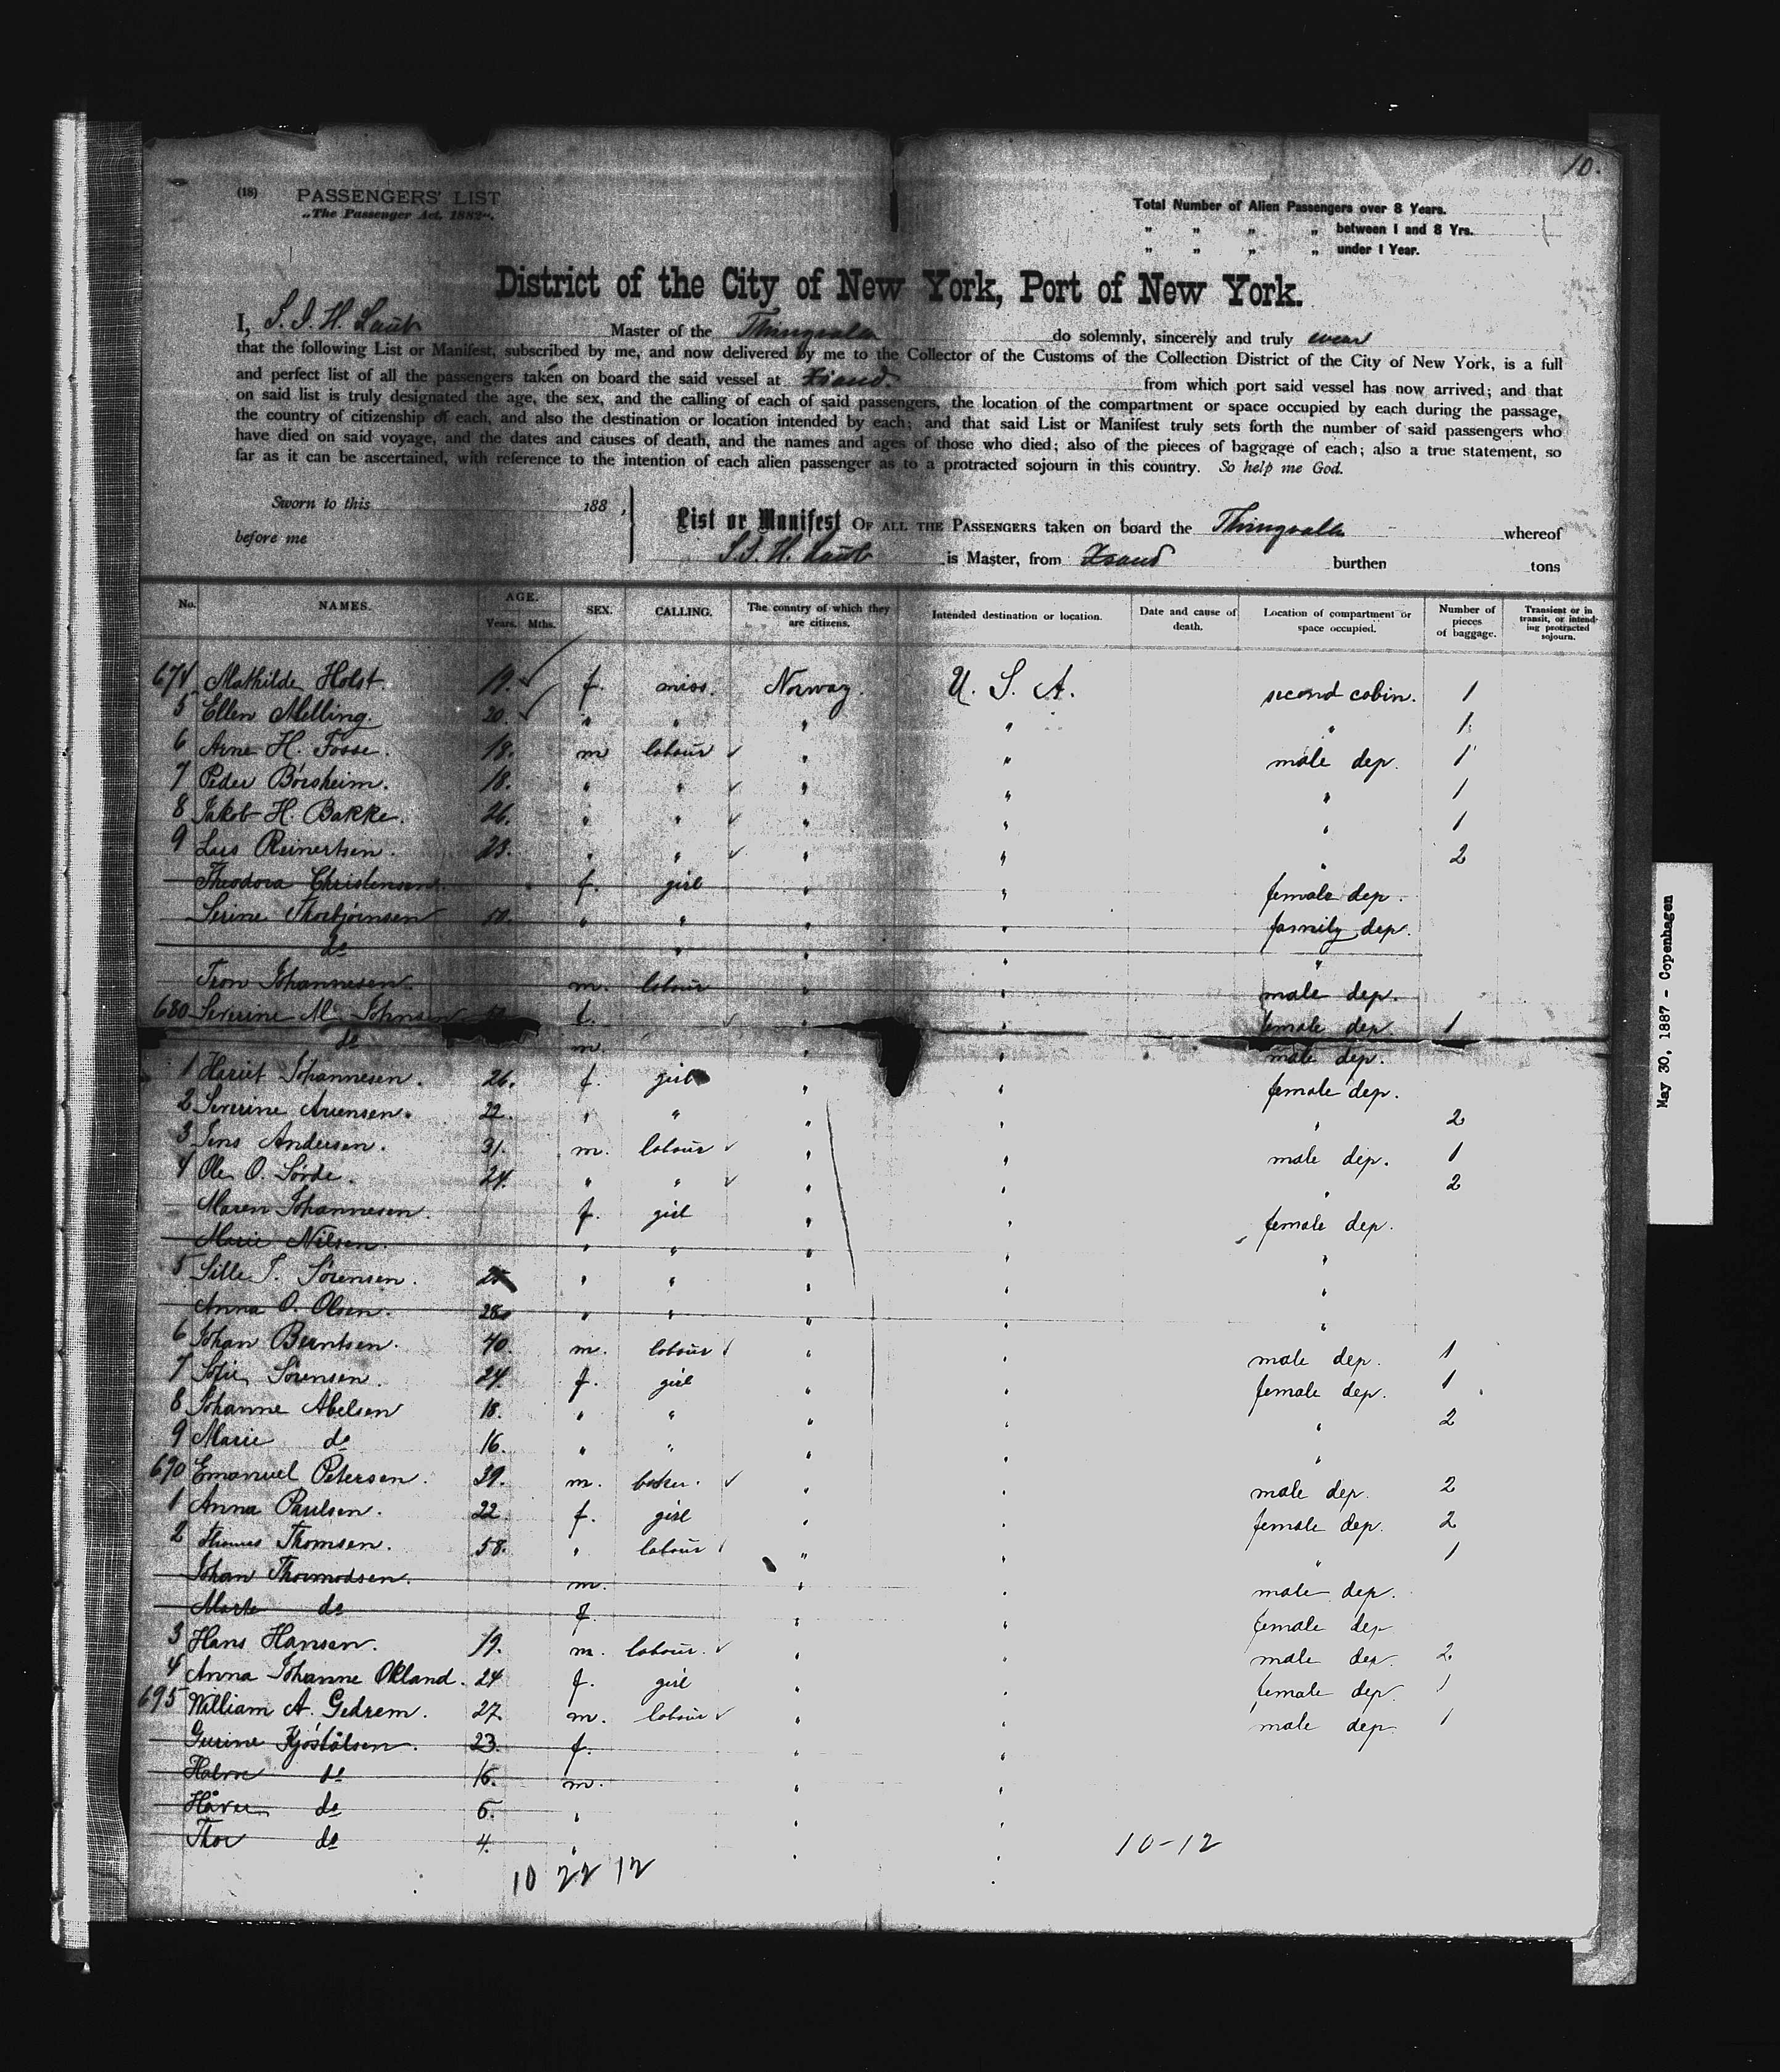 10.
(18) PASSENGERS' LIST
„The Passenger Act, 1882".
Total Number of Alien Passengers over 8 Years.
„ „ „ „ between 1 and 8 Yrs.
„ „ „ „ under 1 Year.
District of the City of New York, Port of New York.
I, S. J. H. Laub Master of the Thingvalla do solemnly, sincerely and truly swear
that the following List or Manifest, subscribed by me, and now delivered by me to the Collector of the Customs of the Collection District of the City of New York, is a full
and perfect list of all the passengers taken on board the said vessel at Xsand. from which port said vessel has now arrived; and that
on said list is truly designated the age, the sex, and the calling of each of said passengers, the location of the compartment or space occupied by each during the passage,
the country of citizenship of each, and also the destination or location intended by each; and that said List or Manifest truly sets forth the number of said passengers who
have died on said voyage, and the dates and causes of death, and the names and ages of those who died; also of the pieces of baggage of each; also a true statement, so
far as it can be ascertained, with reference to the intention of each alien passenger as to a protracted sojourn in this country. So help me God.
Sworn to this 188 ,
before me
List or Manifest OF ALL THE PASSENGERS taken on board the Thingvalla whereof
S. J. H. Laub is Master, from Xsand burthen tons
No. NAMES. AGE. Years. Mths. SEX. CALLING. The country of which they are citizens. Intended destination or location. Date and cause of death. Location of compartment or space occupied. Number of pieces of baggage. Transient or in transit, or intending protracted sojourn.
674 Mathilde Holst. 19. f. miss. Norway. U. S. A. second cabin. 1
5 Ellen Melling. 20. " " " " " 1
6 Arne H. Fosse. 18. m labour " " male dep. 1
7 Peder Börsheim. 18. " " " " " 1
8 Jakob H. Bakke. 26. " " " " " 1
9 Lars Reinertsen. 23. " " " " " 2
Theodora Christensen. f. girl " " female dep.
Serine Thorbjörnsen 50. " " " " family dep.
do " " " "
Tron Johannesen. m. labour " " male dep.
680 Severine M. Johnsen f. " " female dep 1
do m. " " male dep.
1 Hariet Johannesen. 26. f. girl " " female dep.
2 Severine Arensen. 22. " " " " " 2
3 Jens Andersen. 31. m. labour " " male dep. 1
4 Ole O. Sörde. 24. " " " " " 2
Maren Johannesen. f. girl " " female dep.
Marie Nilsen. " " " " "
5 Sille J. Sörensen. " " " " "
Anna O. Olsen. 28. " " " " "
6 Johan Berntsen. 40. m. labour " " male dep. 1
7 Sofie Sörensen. 24. f. girl " " female dep. 1
8 Johanne Abelsen 18. " " " " " 2
9 Marie do 16. " " " " "
690 Emanuel Petersen. 39. m. baker. " " male dep. 2
1 Anna Paulsen. 22. f. girl " " female dep. 2
2 Thomas Thomsen. 58. " labour " " " 1
Johan Thormodsen. m. " " male dep.
Marte do f. " " female dep
3 Hans Hansen. 19. m. labour. " " male dep. 2.
4 Anna Johanne Okland. 24 f. girl " " female dep. 1
695 William A. Gedrem. 27. m. labour " " male dep. 1
Gurine Kjöstålsen. 23. f. " "
do 16. m. " "
do 6. " " "
Thor do 4. " " "
10 22 12
10-12
May 30, 1887 - Copenhagen